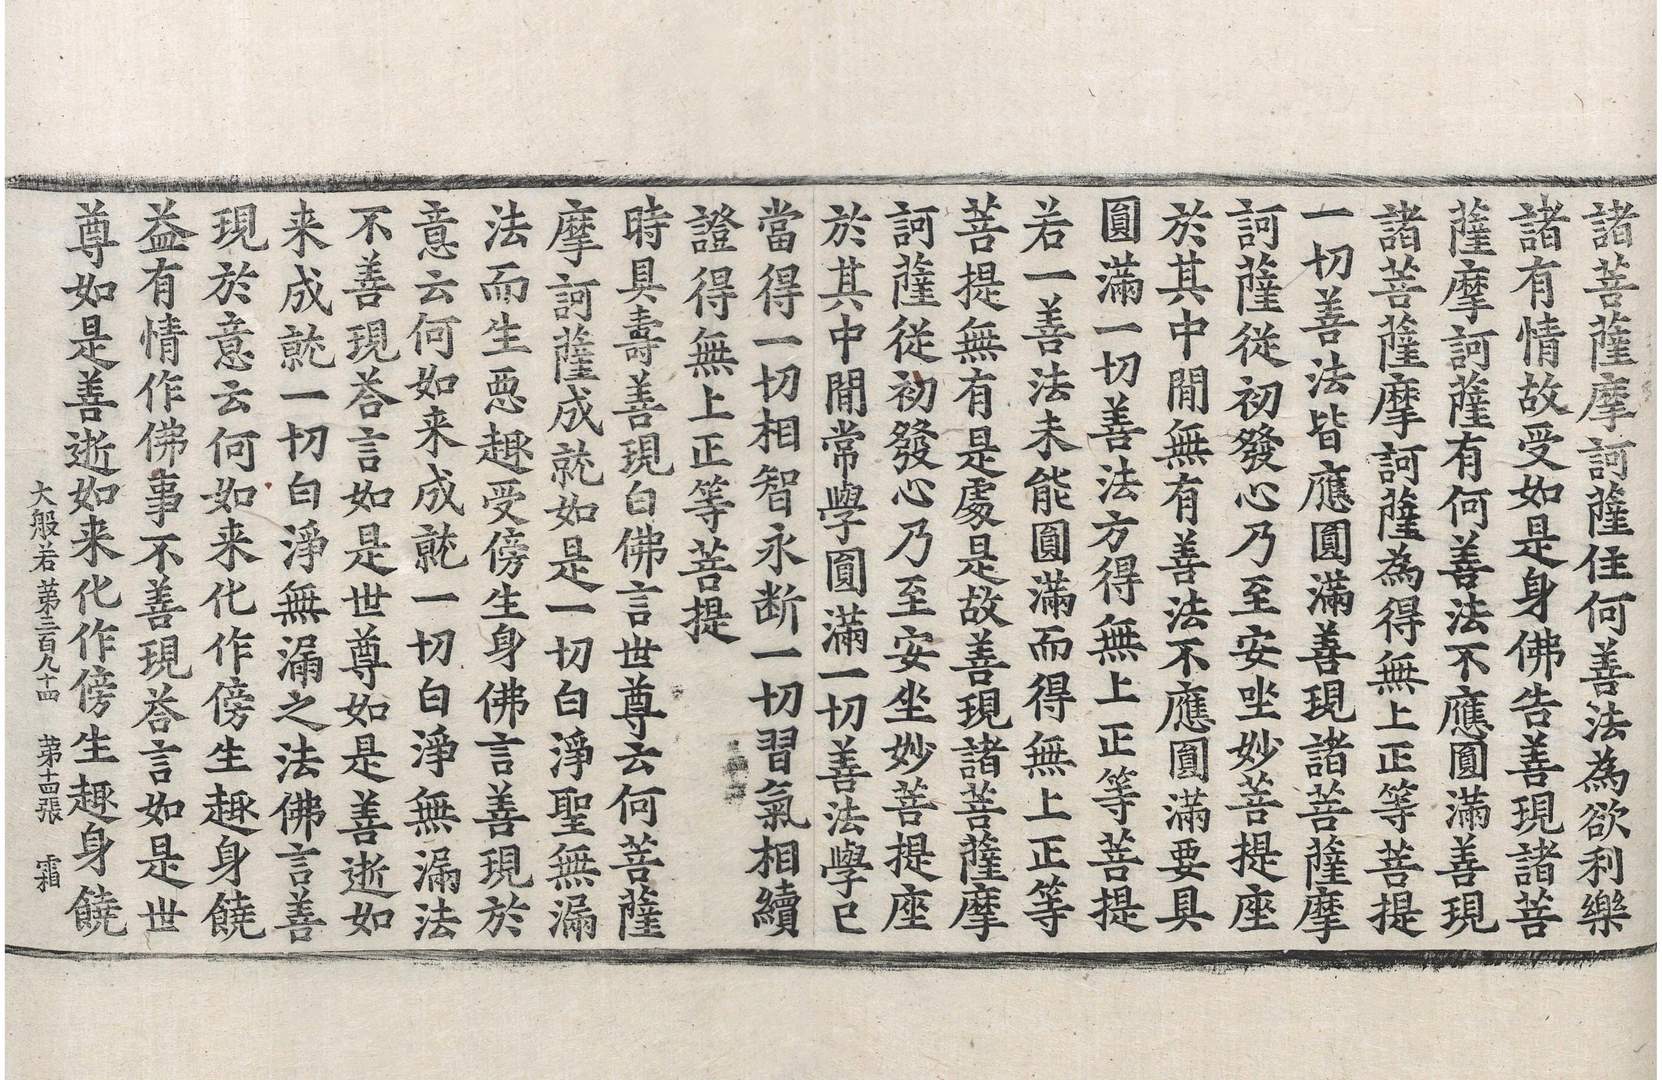 諸菩薩摩訶薩住何善法為欲利樂
諸有情故受如是身佛告善現諸菩
薩摩訶薩有何善法不應圓滿善現
諸菩薩摩訶薩為得無上正等菩提
一切善法皆應圓滿善現諸菩薩摩
訶薩從初發心乃至安坐妙菩提座
於其中間無有善法不應圓滿要具
圓滿一切善法方得無上正等菩提
若一善法未能圓滿而得無上正等
菩提無有是處是故善現諸菩薩摩
訶薩從初發心乃至安坐妙菩提座
於其中間常學圓滿一切善法學已
當得一切相智永断一切習氣相續
證得無上正等菩提
時具壽善現白佛言世尊云何菩薩
摩訶薩成就如是一切白淨聖無漏
法而生惡趣受傍生身佛言善現於
意云何如来成就一切白淨無漏法
不善現荅言如是世尊如是善逝如
来成就一切白淨無漏之法佛言善
現於意云何如来化作傍生趣身饒
益有情作佛事不善現荅言如是世
尊如是善逝如来化作傍生趣身饒
大般若第三百九十四 第十四張 霜